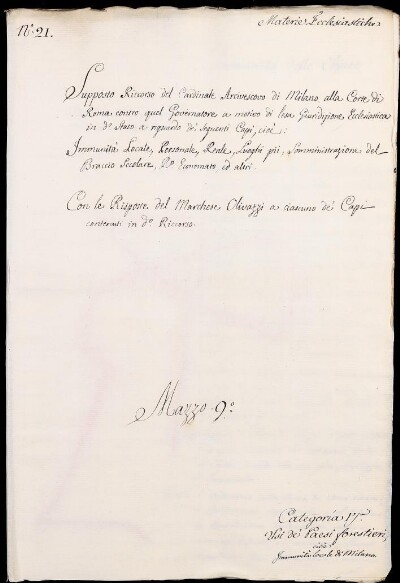 N.° 21.
Materie Ecclesiastiche
Supposto Ricorso del Cardinale Arcivescovo di Milano alla Corte di
Roma contro quel Governatore a motivo di lesa Giurdizione Ecclesiastica
in d.° Stato a riguardo de' seguenti Capi, cioè:
Immunità Locale, Personale, Reale, Luoghi pii, Somministrazione del
Braccio Secolare, Economato, ed altri.
Con le Risposte del Marchese Olivazzi a ciascuno de' Capi
contenuti in d.° Ricorso.
Mazzo 9.°
Categoria
Usi de' Paesi forestieri,
cioè
Immunità locale di Milano.